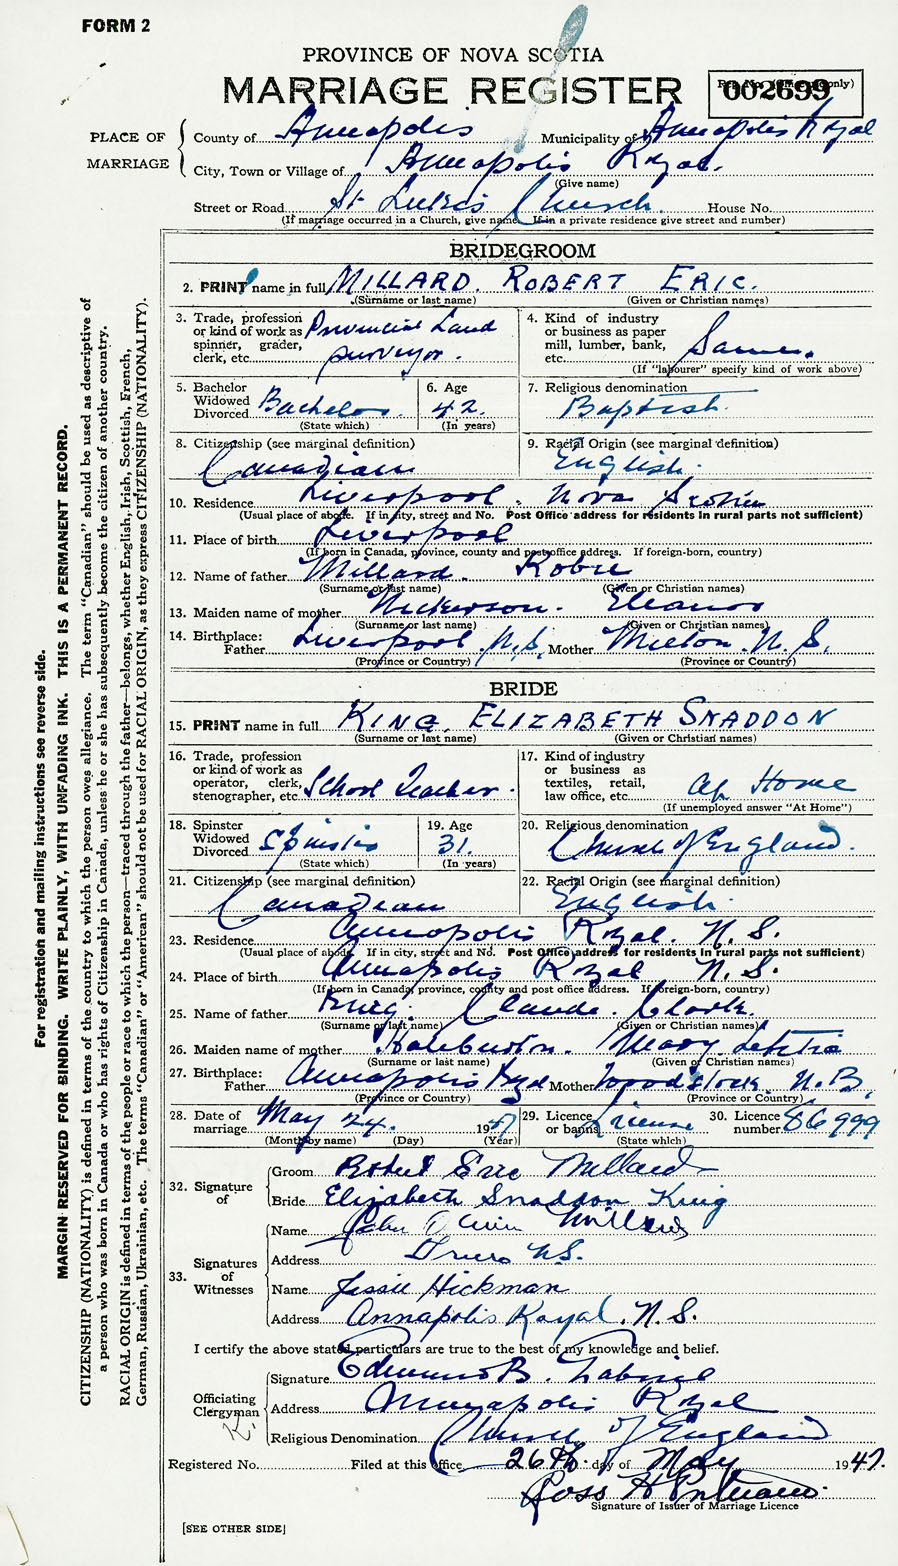 FORM 2
PROVINCE OF NOVA SCOTIA
MARRIAGE REGISTER
002699
PLACE OF MARRIAGE
County of Annapolis Municipality of Annapolis Royal
City, Town or Village of Annapolis Royal.
(Give name)
Street or Road St Luke's Church. House No.
(If marriage occurred in a Church, give name. If in a private residence give street and number)
BRIDEGROOM
2. PRINT name in full MILLARD. ROBERT ERIC.
(Surname or last name) (Given or Christian names)
3. Trade, profession or kind of work as spinner, grader, clerk, etc. Provincial Land surveyor.
4. Kind of industry or business as paper mill, lumber, bank, etc. Same.
(If "labourer" specify kind of work above)
5. Bachelor Widowed Divorced Bachelor.
(State which)
6. Age 42.
(In years)
7. Religious denomination Baptist.
8. Citizenship (see marginal definition) Canadian
9. Racial Origin (see marginal definition) English.
10. Residence Liverpool. Nova Scotia
(Usual place of abode. If in city, street and No. Post Office address for residents in rural parts not sufficient)
11. Place of birth Liverpool
(If born in Canada, province, county and postoffice address. If foreign-born, country)
12. Name of father Millard. Robie
(Surname or last name) (Given or Christian names)
13. Maiden name of mother Nickerson. Eleanor
(Surname or last name) (Given or Christian names)
14. Birthplace: Father Liverpool N.S. Mother Milton. N.S.
(Province or Country) (Province or Country)
BRIDE
15. PRINT name in full KING, ELIZABETH SNADDON
(Surname or last name) (Given or Christian names)
16. Trade, profession or kind of work as operator, clerk, stenographer, etc. School Teacher.
17. Kind of industry or business as textiles, retail, law office, etc. At Home
(If unemployed answer "At Home")
18. Spinster Widowed Divorced Spinster
(State which)
19. Age 31.
(In years)
20. Religious denomination Church of England.
21. Citizenship (see marginal definition) Canadian
22. Racial Origin (see marginal definition) English.
23. Residence Annapolis Royal. N.S.
(Usual place of abode. If in city, street and No. Post Office address for residents in rural parts not sufficient)
24. Place of birth Annapolis Royal N.S.
(If born in Canada, province, county and post office address. If foreign-born, country)
25. Name of father King. Claude. Clark.
(Surname or last name) (Given or Christian names)
26. Maiden name of mother Haliburton. Mary
(Surname or last name) (Given or Christian names)
27. Birthplace: Father Annapolis Royal Mother Woodstock. N.B.
(Province or Country) (Province or Country)
28. Date of marriage May 24. 1947
(Month by name) (Day) (Year)
29. Licence or banns License
(State which)
30. Licence number 86999
32. Signature of
Groom Robert Eric Millard
Bride Elizabeth Snaddon King
33. Signatures of Witnesses
Name John
Address Truro N.S.
Name Jessie Hickman
Address Annapolis Royal. N.S.
I certify the above stated particulars are true to the best of my knowledge and belief.
Officiating Clergyman
Signature Edmund B.
Address Annapolis Royal
Religious Denomination Church of England
Registered No. Filed at this office 26th day of May 1947.
Ross H
Signature of Issuer of Marriage Licence
[SEE OTHER SIDE]
For registration and mailing instructions see reverse side.
MARGIN RESERVED FOR BINDING. WRITE PLAINLY, WITH UNFADING INK. THIS IS A PERMANENT RECORD.
CITIZENSHIP (NATIONALITY) is defined in terms of the country to which the person owes allegiance. The term "Canadian" should be used as descriptive of
a person who was born in Canada or who has rights of Citizenship in Canada, unless he or she has subsequently become the citizen of another country.
RACIAL ORIGIN is defined in terms of the people or race to which the person—traced through the father—belongs, whether English, Irish, Scottish, French,
German, Russian, Ukrainian, etc. The terms "Canadian" or "American" should not be used for RACIAL ORIGIN, as they express CITIZENSHIP (NATIONALITY).